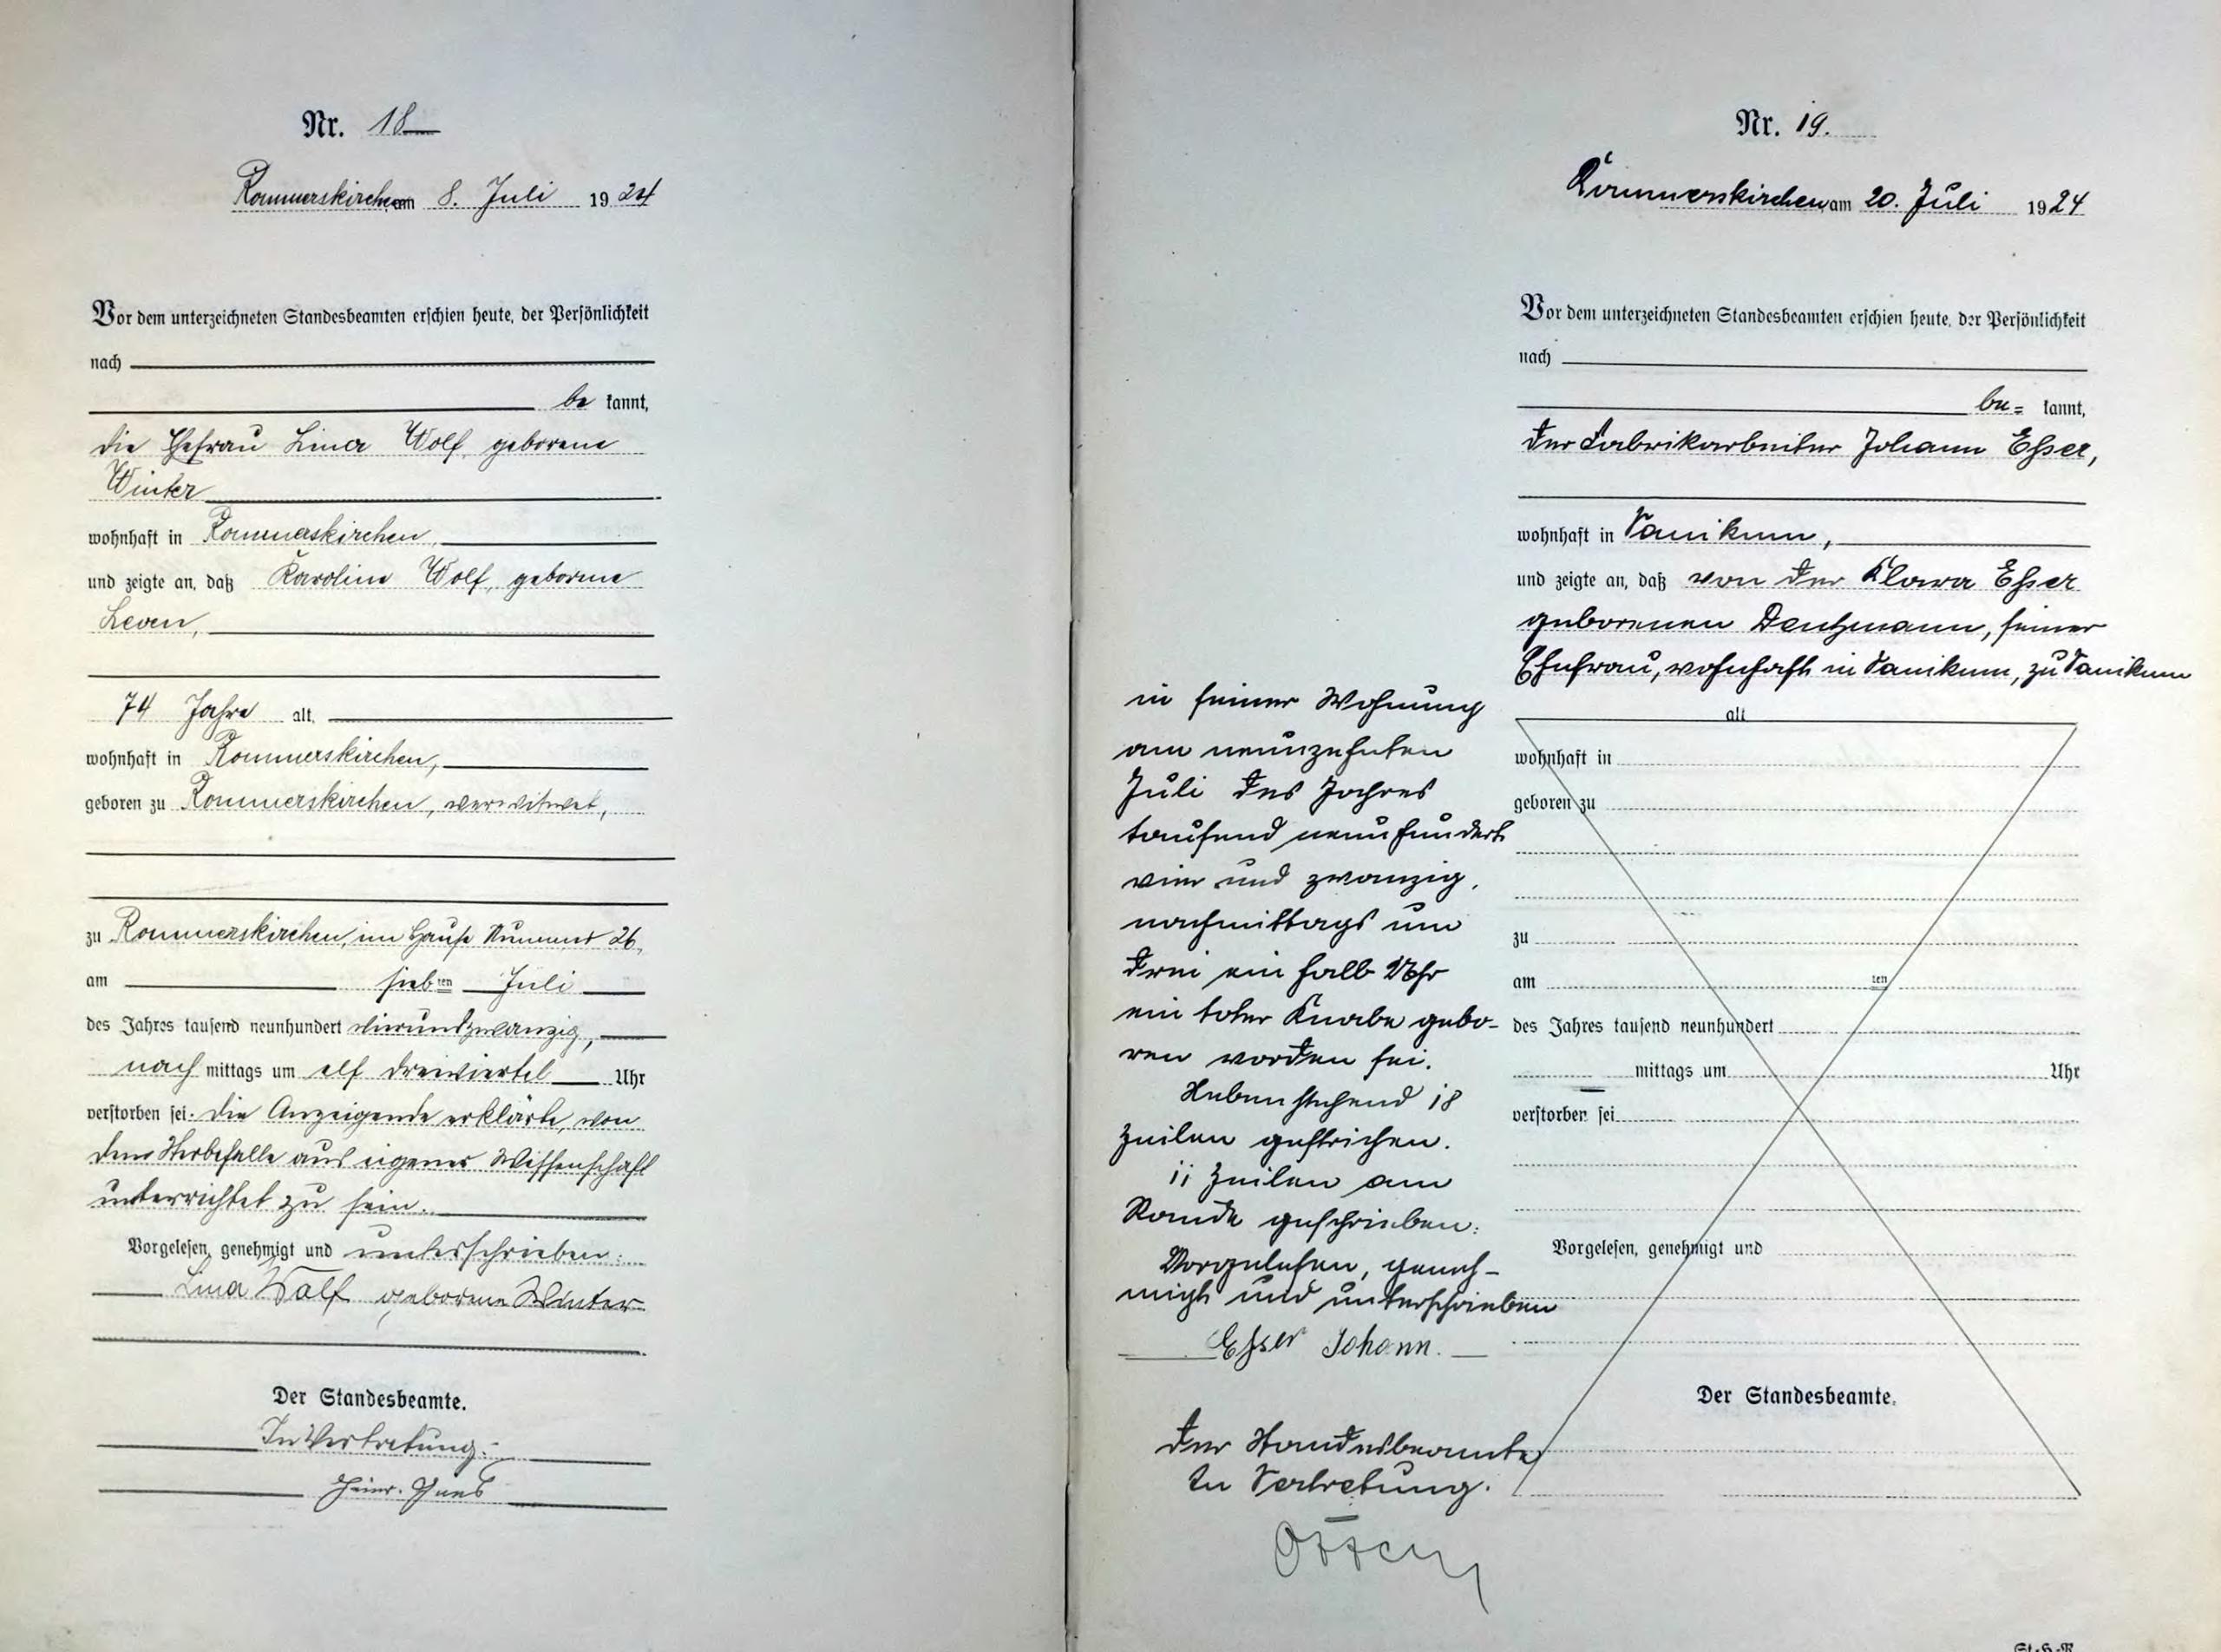 Nr. 18
Rommerskirchen am 8. Juli 1924
Vor dem unterzeichneten Standesbeamten erschien heute, der Persönlichkeit
nach
be kannt,
die Ehefrau Lina Wolf geborene
Winter
wohnhaft in Rommerskirchen,
und zeigte an, daß Karoline Wolf, geborene
Leven,
74 Jahre alt,
wohnhaft in Rommerskirchen,
geboren zu Rommerskirchen, verwitwet,
zu Rommerskirchen, im Hause Nummer 26,
am sieb ten Juli
des Jahres tausend neunhundert vierundzwanzig,
nach mittags um elf dreiviertel Uhr
verstorben sei. Die Anzeigende erklärte, von
dem Sterbefalle aus eigener Wissenschaft
unterrichtet zu sein.
Vorgelesen, genehmigt und unterschrieben:
Lina Wolf geborene Winter
Der Standesbeamte.
In Vertretung:
Heinr.
Nr. 19.
Rommerskirchen am 20. Juli 1924
Vor dem unterzeichneten Standesbeamten erschien heute, der Persönlichkeit
nach
be= kannt,
der Fabrikarbeiter Johann Esser,
wohnhaft in Vanikum,
und zeigte an, daß von der Klara Esser
geborenen Dentzmann, seiner
Ehefrau, wohnhaft in Vanikum, zu Vanikum
in seiner Wohnung
am neunzehnten
Juli des Jahres
tausend neunhundert
vier und zwanzig,
nachmittags um
drei ein halb Uhr
ein toter Knabe gebo-
ren worden sei.
Nebenstehend 18
Zeilen gestrichen.
11 Zeilen am
Rande geschrieben.
Vorgelesen, geneh-
migt und unterschrieben
Esser Johann.
Der Standesbeamte
In Vertretung.
Otten
alt
wohnhaft in
geboren zu
zu
am ten
des Jahres tausend neunhundert
mittags um Uhr
verstorben sei
Vorgelesen, genehmigt und
Der Standesbeamte.